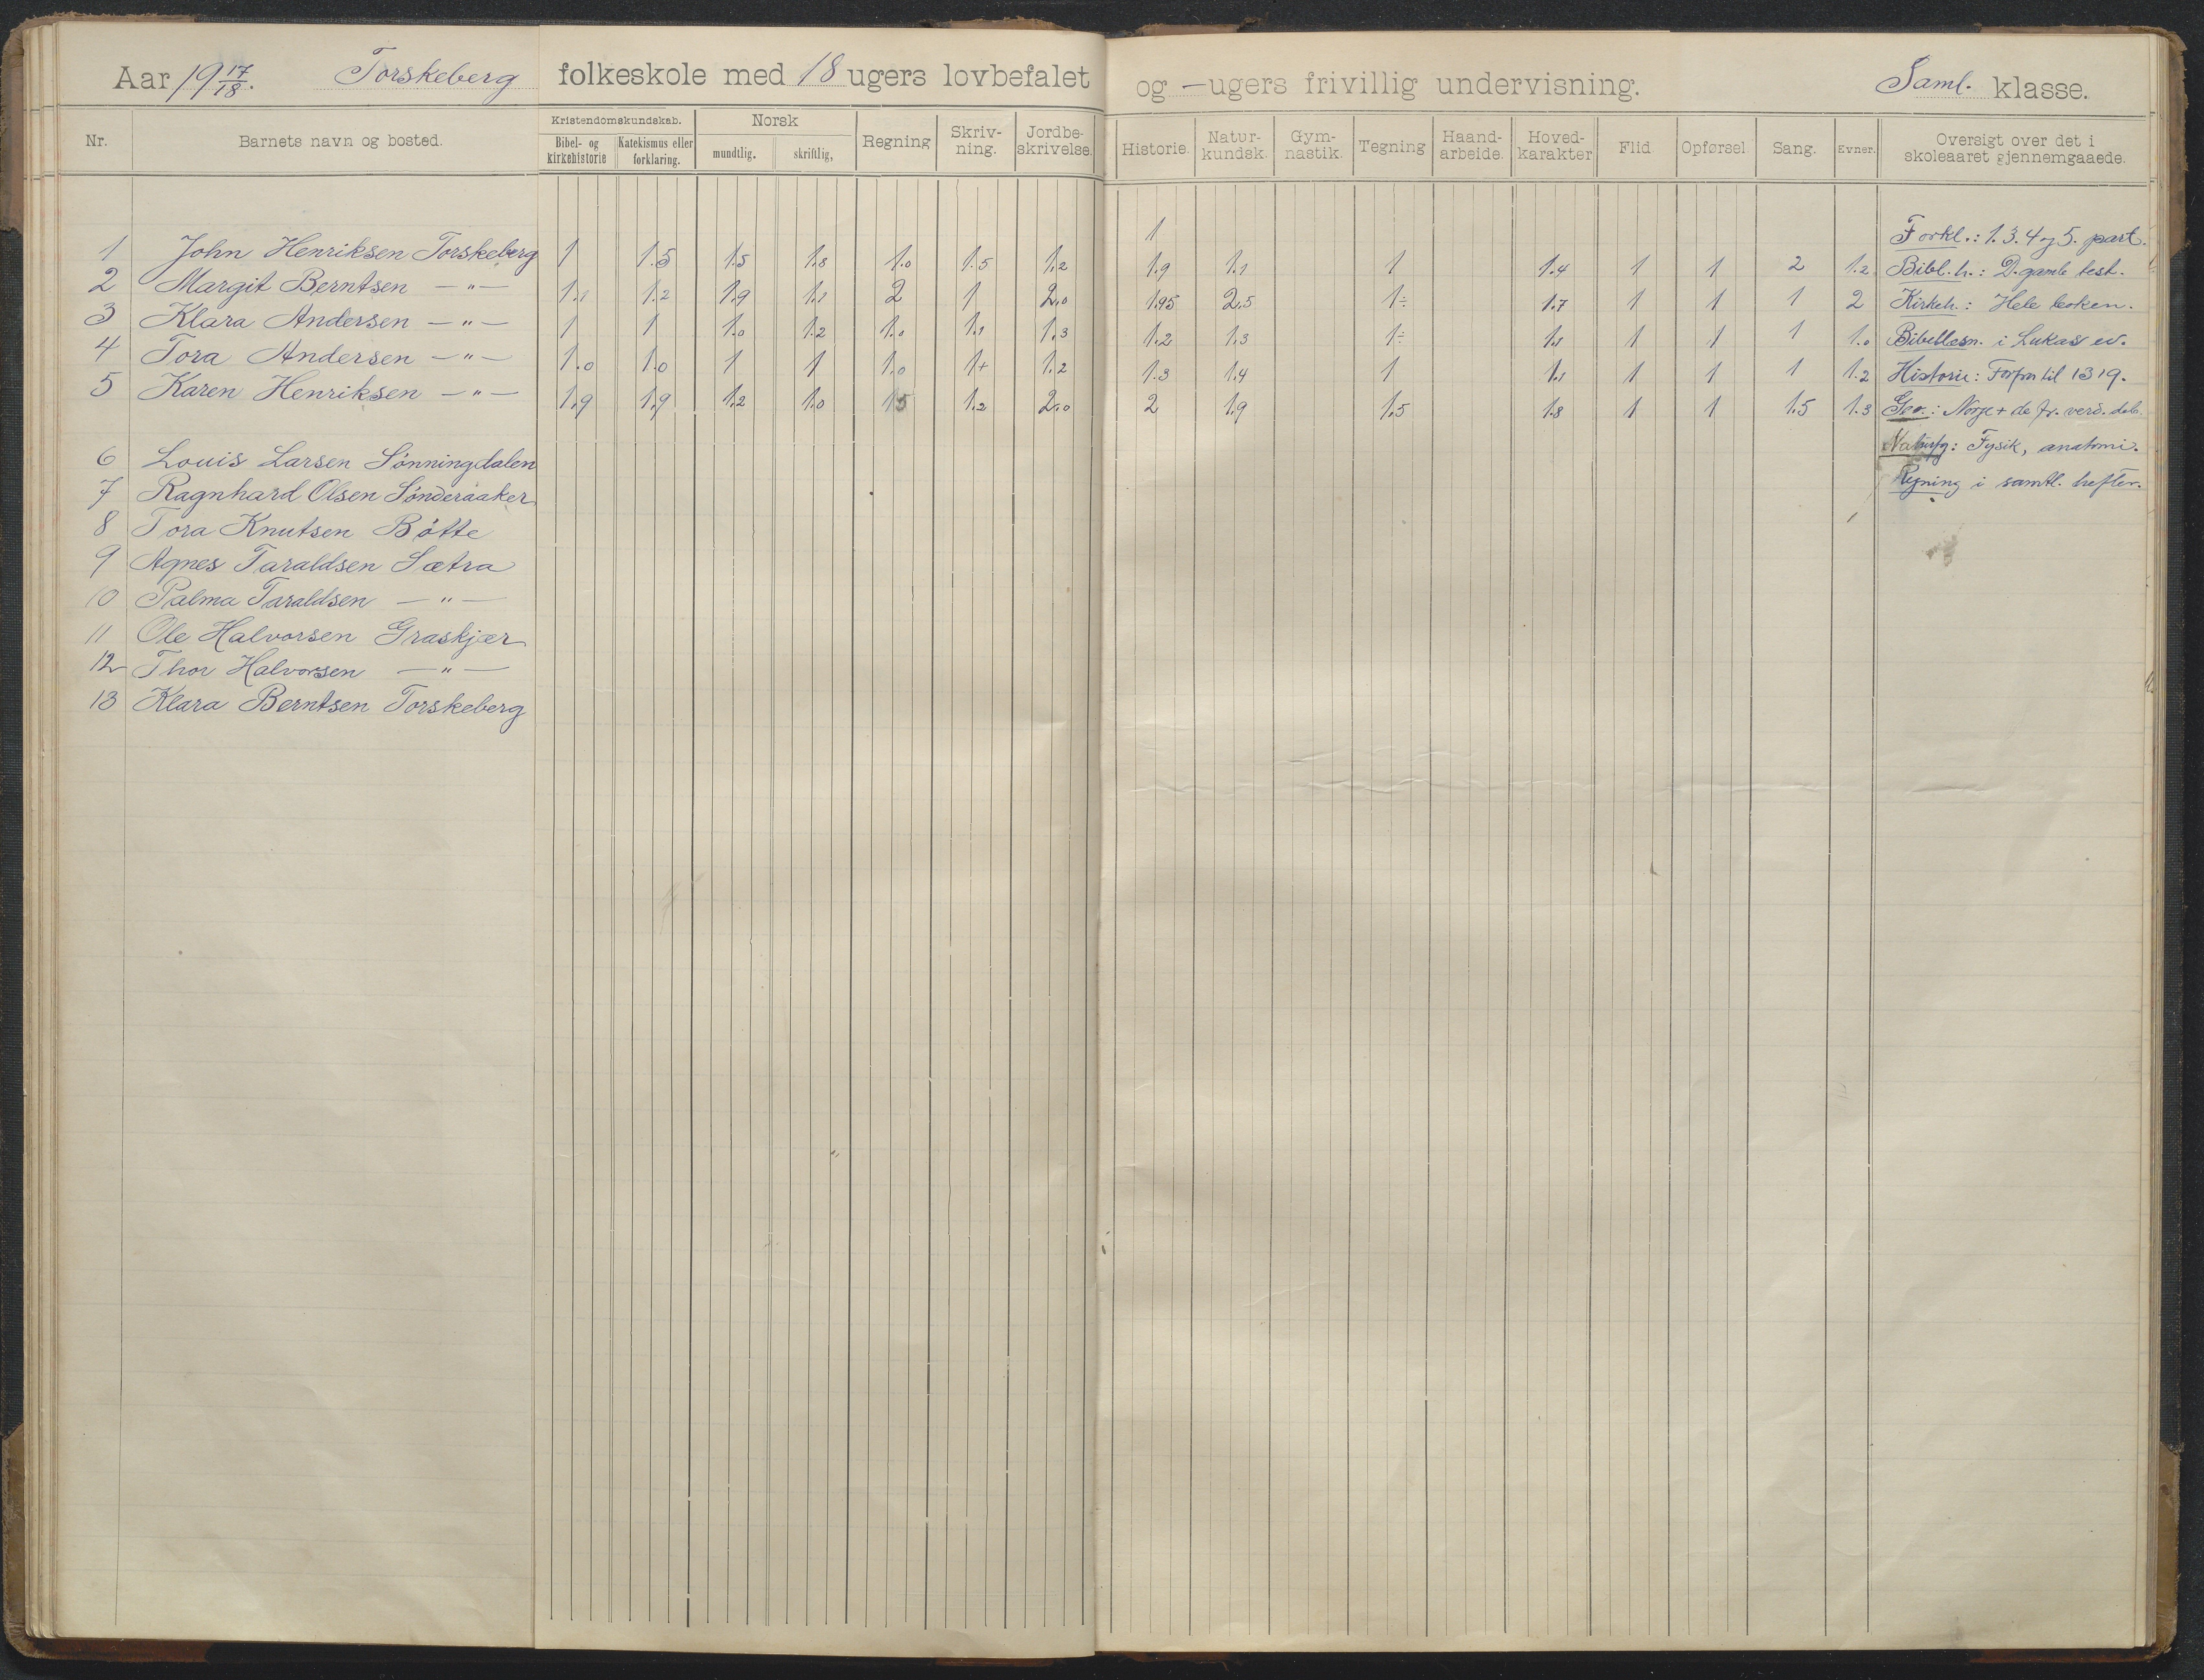 Aar 19 17/18. Torskeberg folkeskole med 18 ugers lovbefalet og — ugers frivillig undervisning. Saml. klasse.
Nr. Barnets navn og bosted. Kristendomskundskab. Bibel- og kirkehistorie Katekismus eller forklaring. Norsk mundtlig. skriftlig, Regning Skriv-ning. Jordbe-skrivelse. Historie. Natur-kundsk. Gym-nastik. Tegning Haand-arbeide. Hoved-karakter Flid Opførsel. Sang. Evner. Oversigt over det i skoleaaret gjennemgaaede.
1 Forkl.: 1. 3. 4 og 5. part.
1 John Henriksen Torskeberg 1 1.5 1.5 1.8 1.0 1.5 1.2 1.9 1.1 1 1.4 1 1 2 1.2 Bibl. h.: D. gamle test.
2 Margit Berntsen — " — 1.1 1.2 1.9 1.1 2 1 2.0 1.95 2.5 1÷ 1.7 1 1 1 2 Kirkeh.: Hele boken.
3 Klara Andersen — " — 1 1 1.0 1.2 1.0 1.1 1.3 1.2 1.3 1÷ 1.1 1 1 1 1.0 Bibellæsn. i Lukas ev.
4 Tora Andersen — " — 1.0 1.0 1 1 1.0 1+ 1.2 1.3 1.4 1 1.1 1 1 1 1.2 Historie: Forfra til 1319.
5 Karen Henriksen — " — 1.9 1.9 1.2 1.0 15 1.2 2.0 2 1.9 1.5 1.8 1 1 1.5 1.3 Geo.: Norge + de fr. verd. dele.
6 Louis Larsen Sønningdalen Naturfg: Fysik, anatomi.
7 Ragnhard Olsen Sønderaaker Regning i samtl. hefter.
8 Tora Knutsen Bøtte
9 Agnes Taraldsen Sætra
10 Palma Taraldsen — " —
11 Ole Halvorsen Graskjær
12 Thor Halvorsen — " —
13 Klara Berntsen Torskeberg